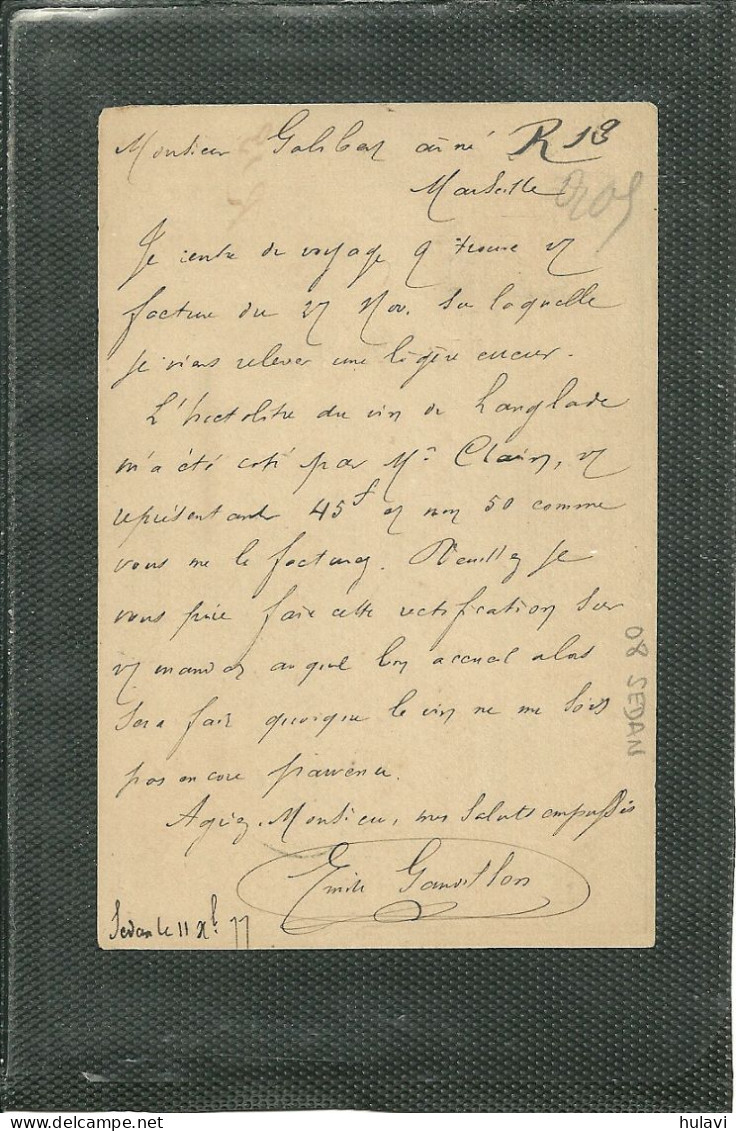 Monsieur Galibert aîné R 13
Marseille
Je rentre de voyage & trouve vr
facture du 27 Nov. sur laquelle
je viens relever une légère erreur.
L'hectolitre du vin de Langlade
m'a été coté par Mr Clain, vr
représentant 45f et non 50 comme
vous me le facturez. Veuillez je
vous prie faire cette rectification sur
vr mandat auquel bon accueil alors
sera fait quoique le vin ne me soit
pas encore parvenu.
Agréez, Monsieur, mes saluts empressés
Emile
Sedan le 11 Xbr 77
08 SEDAN
hulavi